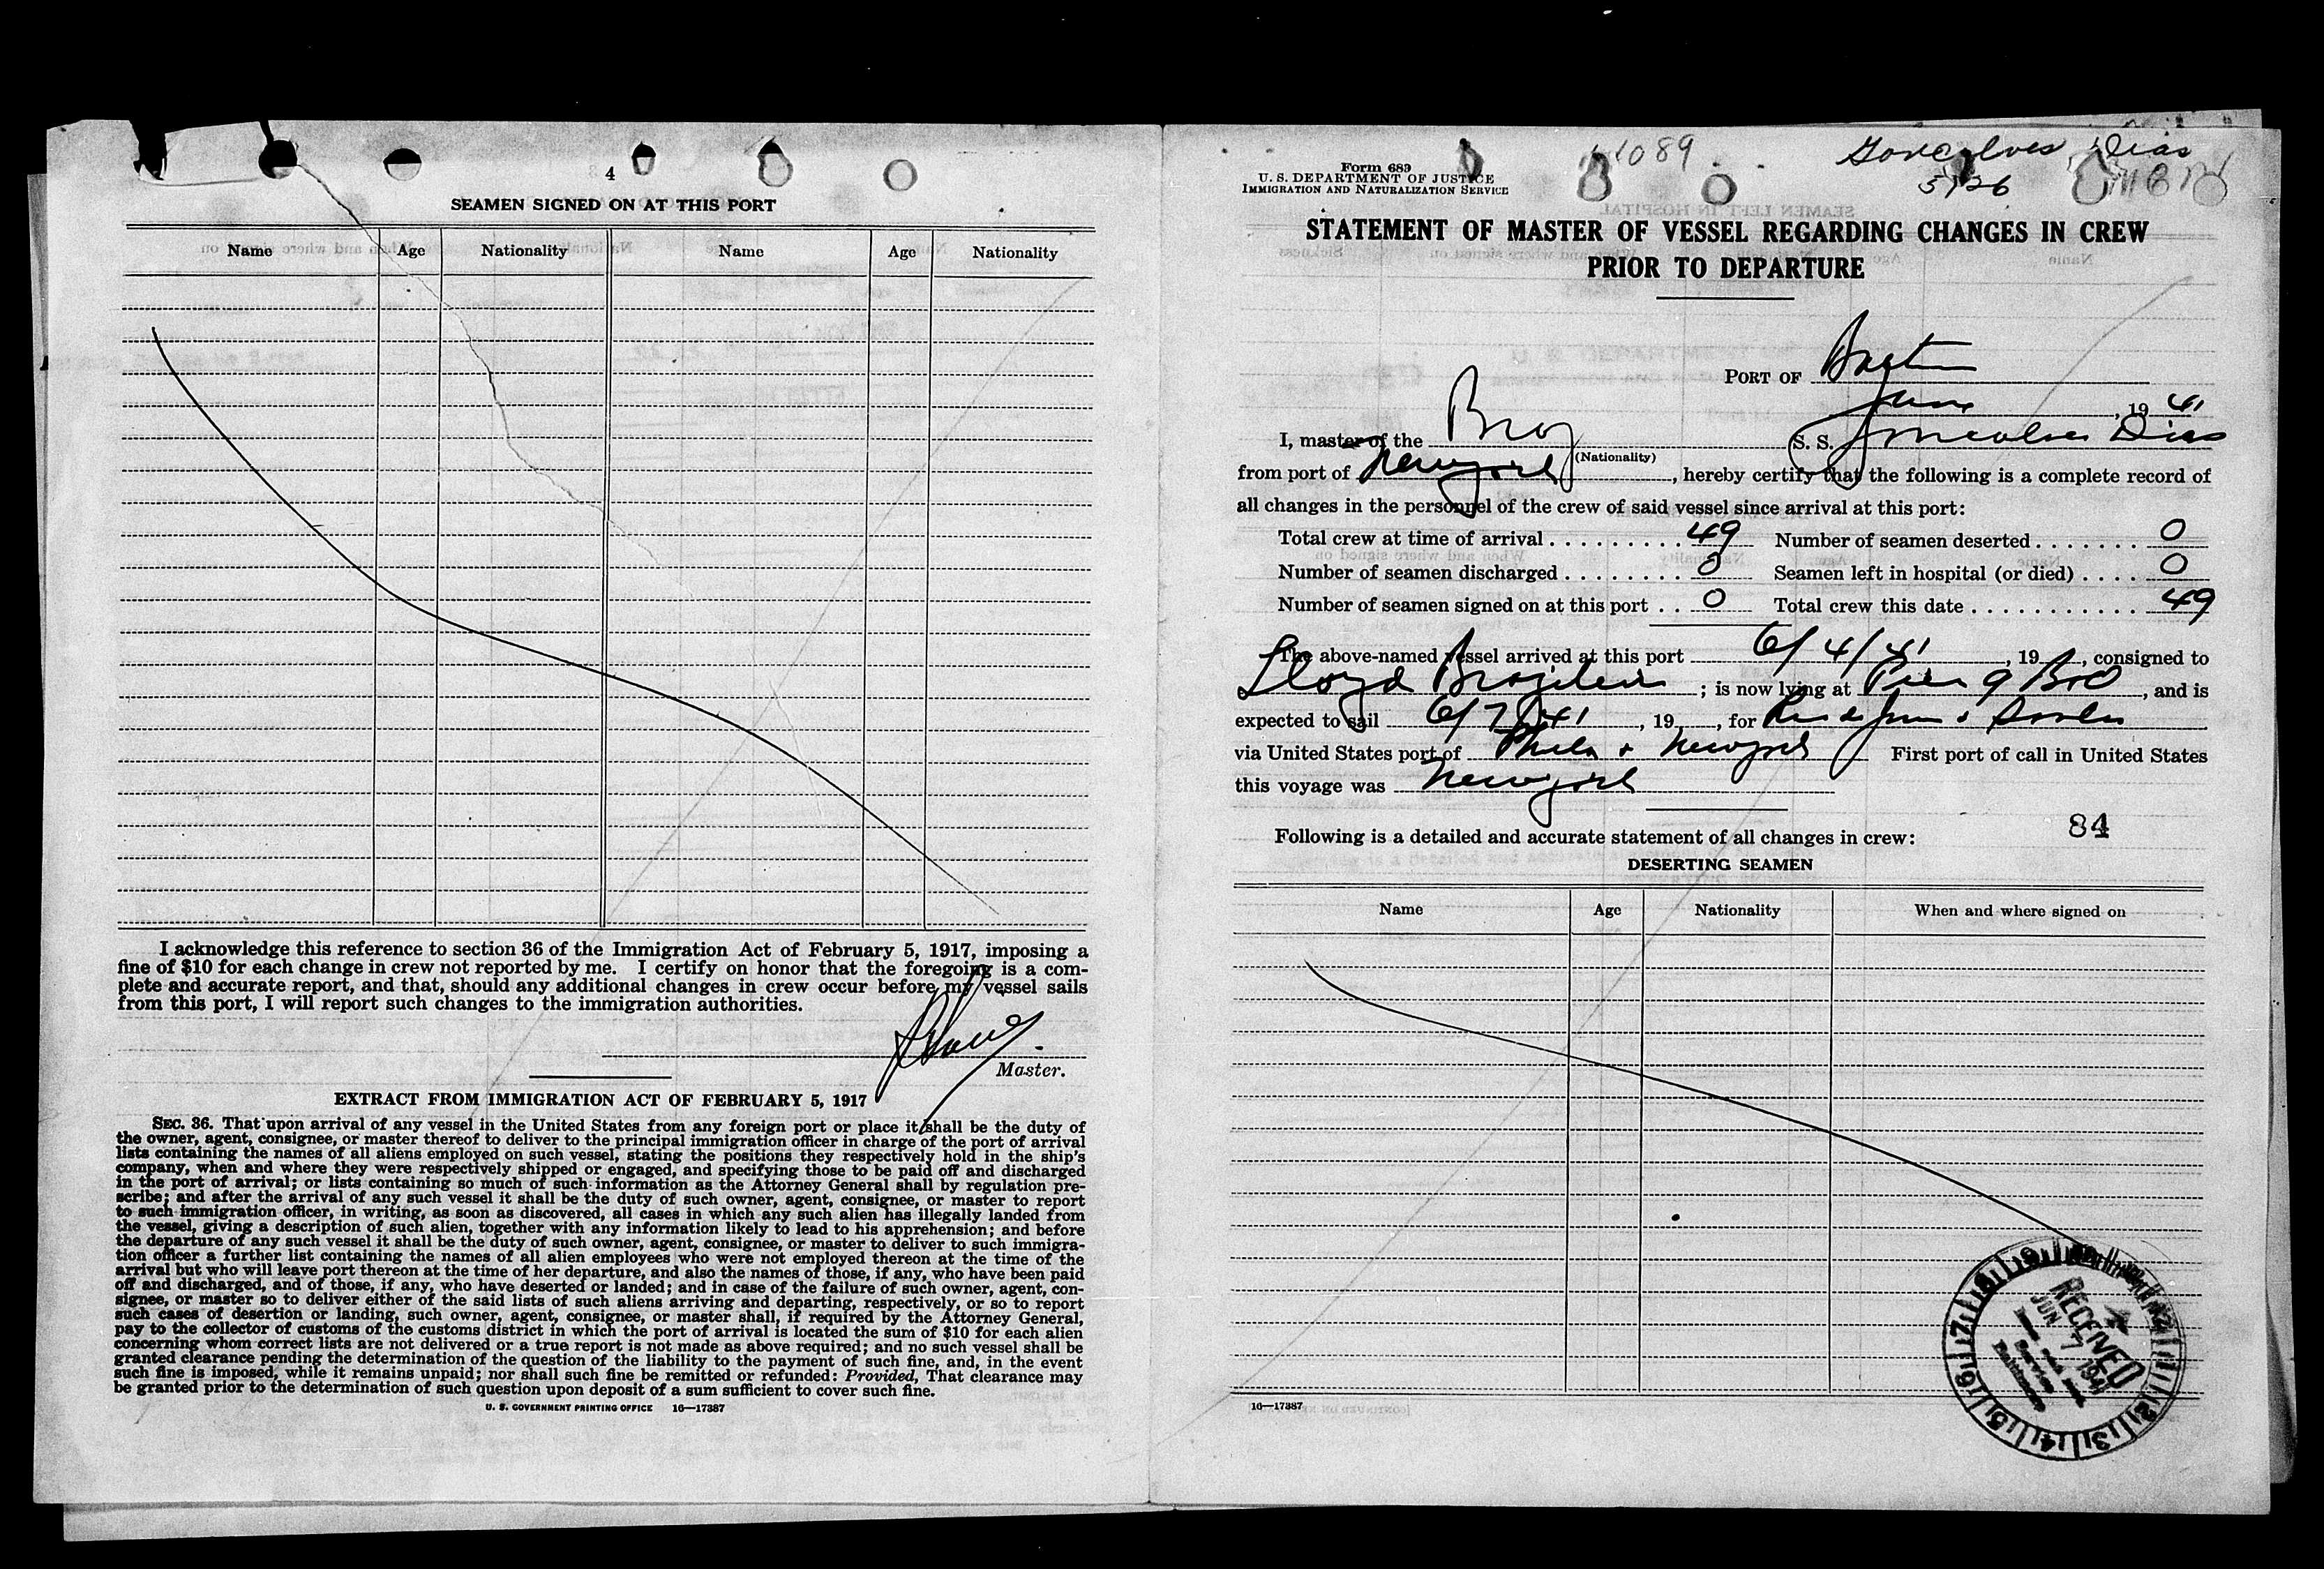 4
SEAMEN SIGNED ON AT THIS PORT
Name Age Nationality Name Age Nationality
I acknowledge this reference to section 36 of the Immigration Act of February 5, 1917, imposing a
fine of $10 for each change in crew not reported by me. I certify on honor that the foregoing is a com-
plete and accurate report, and that, should any additional changes in crew occur before my vessel sails
from this port, I will report such changes to the immigration authorities.
Master.
EXTRACT FROM IMMIGRATION ACT OF FEBRUARY 5, 1917
SEC. 36. That upon arrival of any vessel in the United States from any foreign port or place it shall be the duty of
the owner, agent, consignee, or master thereof to deliver to the principal immigration officer in charge of the port of arrival
lists containing the names of all aliens employed on such vessel, stating the positions they respectively hold in the ship's
company, when and where they were respectively shipped or engaged, and specifying those to be paid off and discharged
in the port of arrival; or lists containing so much of such information as the Attorney General shall by regulation pre-
scribe; and after the arrival of any such vessel it shall be the duty of such owner, agent, consignee, or master to report
to such immigration officer, in writing, as soon as discovered, all cases in which any such alien has illegally landed from
the vessel, giving a description of such alien, together with any information likely to lead to his apprehension; and before
the departure of any such vessel it shall be the duty of such owner, agent, consignee, or master to deliver to such immigra-
tion officer a further list containing the names of all alien employees who were not employed thereon at the time of the
arrival but who will leave port thereon at the time of her departure, and also the names of those, if any, who have been paid
off and discharged, and of those, if any, who have deserted or landed; and in case of the failure of such owner, agent, con-
signee, or master so to deliver either of the said lists of such aliens arriving and departing, respectively, or so to report
such cases of desertion or landing, such owner, agent, consignee, or master shall, if required by the Attorney General,
pay to the collector of customs of the customs district in which the port of arrival is located the sum of $10 for each alien
concerning whom correct lists are not delivered or a true report is not made as above required; and no such vessel shall be
granted clearance pending the determination of the question of the liability to the payment of such fine, and, in the event
such fine is imposed, while it remains unpaid; nor shall such fine be remitted or refunded: Provided, That clearance may
be granted prior to the determination of such question upon deposit of a sum sufficient to cover such fine.
U. S. GOVERNMENT PRINTING OFFICE 16—17387
Form 689
U. S. DEPARTMENT OF JUSTICE
IMMIGRATION AND NATURALIZATION SERVICE
1089
Goncalves Dias
5/26
STATEMENT OF MASTER OF VESSEL REGARDING CHANGES IN CREW
PRIOR TO DEPARTURE
PORT OF
June, 19 41
I, master of the Braz S. S. Goncalves Dias
(Nationality)
from port of New york, hereby certify that the following is a complete record of
all changes in the personnel of the crew of said vessel since arrival at this port:
Total crew at time of arrival 49 Number of seamen deserted 0
Number of seamen discharged 0 Seamen left in hospital (or died) 0
Number of seamen signed on at this port 0 Total crew this date 49
The above-named vessel arrived at this port 6/4/41, 19, consigned to
Lloyd Brazileiro; is now lying at Pier 9 B&O, and is
expected to sail 6/7/41, 19, for Rio de Jan & Santos
via United States port of Phila + New york First port of call in United States
this voyage was New york
Following is a detailed and accurate statement of all changes in crew:
84
DESERTING SEAMEN
Name Age Nationality When and where signed on
RECEIVED
JUN 7 1941
16—17387